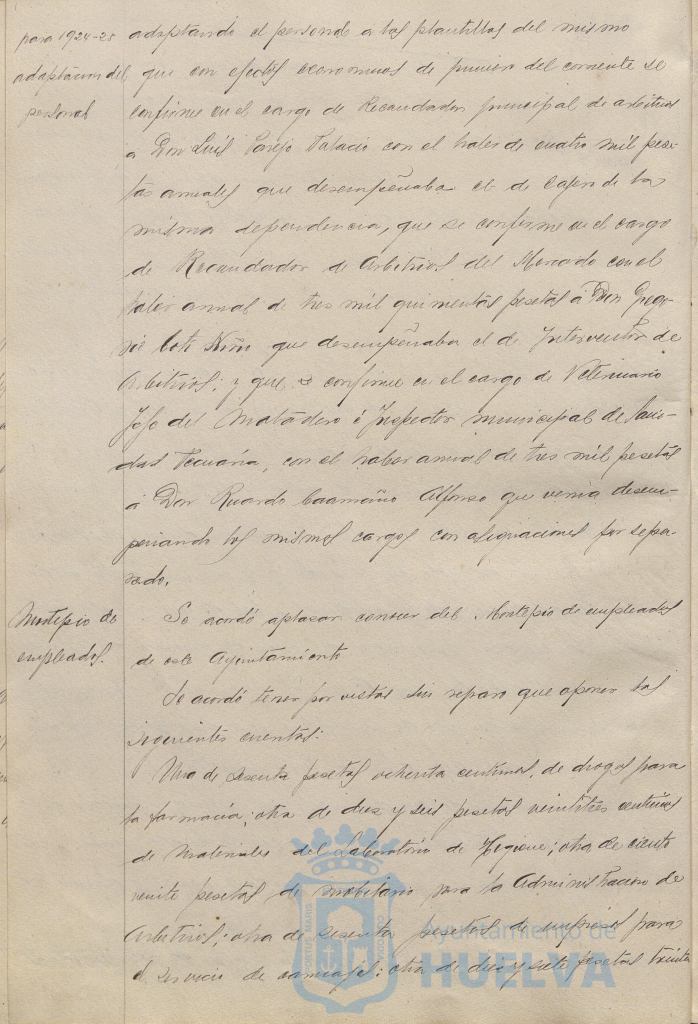 para 1924-25
adaptacion del
personal
adaptando el personal a las plantillas del mismo
que con efectos economicos de primero del corriente se
confirme en el cargo de Recaudador principal de arbitrios
a Don Luis Parejo Palacio con el haber de cuatro mil pese-
tas anuales que desempeñaba el de Cajero de la
misma dependencia, que se confirme en el cargo
de Recaudador de Arbitrios del Mercado con el
haber anual de tres mil quinientas pesetas a Don Grego-
rio Coto Niño que desempeñaba el de Interventor de
Arbitrios; y que se confirme en el cargo de Veterinario
Jefe del Matadero é Inspector municipal de Sani-
dad Pecuaria, con el haber anual de tres mil pesetas
á Don Ricardo Caamaño Alfonso que venia desem-
peñando los mismos cargos con asignaciones por sepa-
rado.
Montepio de
empleados.
Se acordó aplazar conocer del Montepio de empleados
de este Ayuntamiento
Se acordó tener por vistas sin reparo que oponer las
siguientes cuentas:
Una de sesenta pesetas ochenta centimos, de drogas para
la farmacia; otra de diez y seis pesetas veintitres centimos
de materiales del Laboratorio de Higiene; otra de ciento
veinte pesetas de mobiliario para la Administracion de
Arbitrios; otra de sesenta pesetas de impresos para
el servicio de carruajes; otra de diez y siete pesetas treinta
Ayuntamiento de
HUELVA